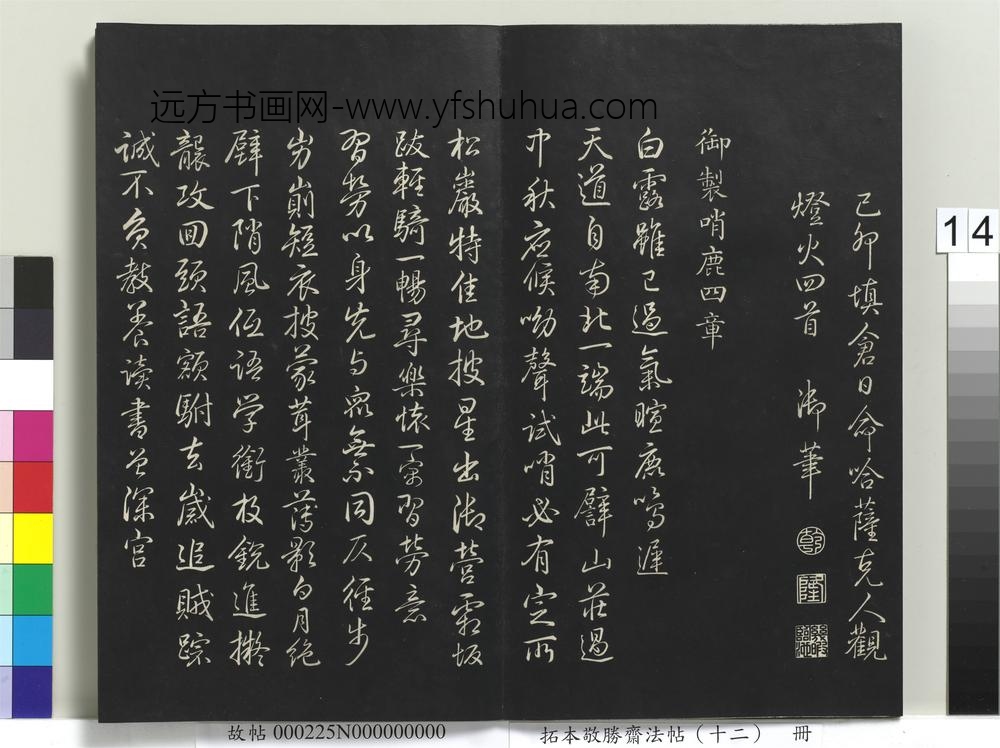 远方书画网-www.yfshuhua.com
己卯填倉日命哈薩克人觀
燈火四首 御筆
乾
隆
御製哨鹿四章
白露雖已過氣暄鹿鳴遲
天道自南北一端此可譬山莊過
中秋應候呦聲試哨必有定所
松巖特佳地披星出御營霜坂
跋輕騎一暢尋樂懷一寓習勞意
習勞以身先與眾無不同仄徑步
穷崩短衣披蒙茸叢薄影白月绝
壁下陗風低語学銜枚銳進擬
襲攻回頭語額駙去歲追賊踪
诚不负教養读書曾深宫
14
故帖 000225N000000000
拓本敬勝齋法帖（十二） 冊